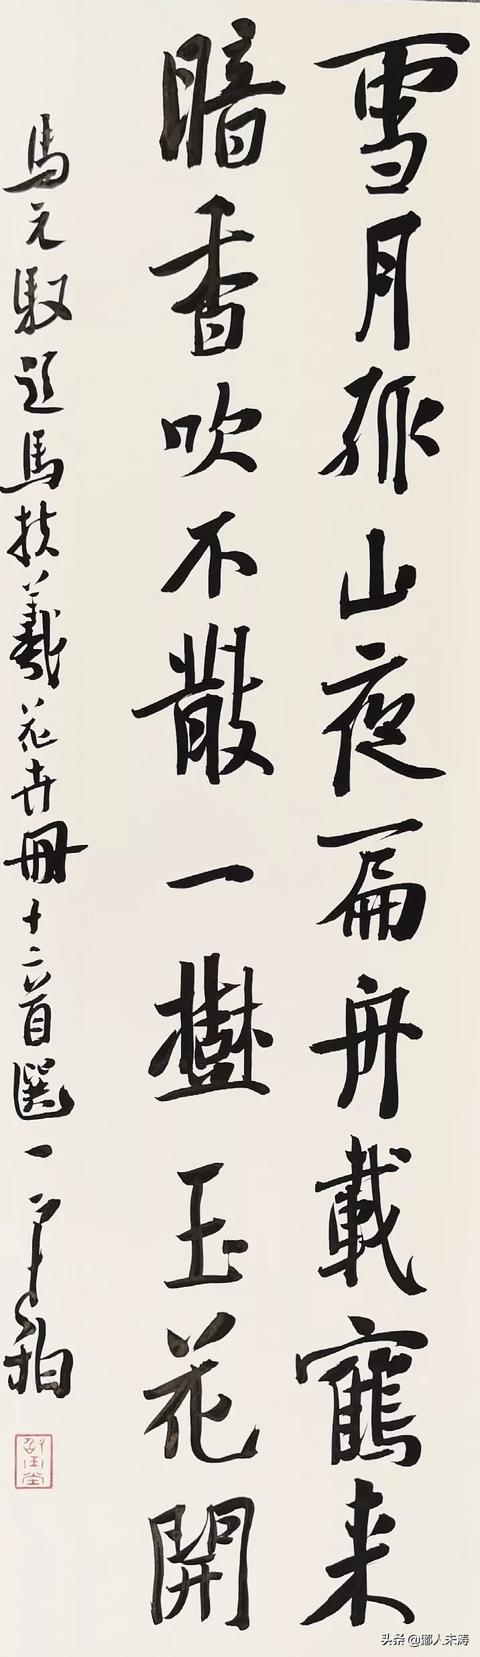 雪月孤山夜扁舟載鶴来
暗香吹不散一樹玉花開
馬元馭題馬扶羲花卉冊十二首選一
头条 @鄉人未涛